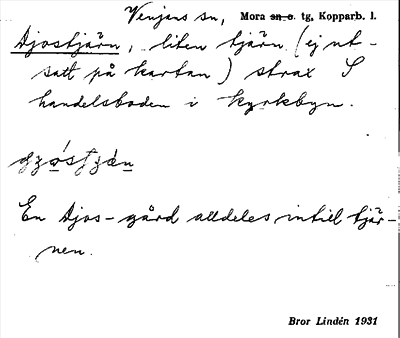 Venjans sn, Mora sn o. tg, Kopparb. l.
Djostjärn, liten tjärn (ej ut-
satt på kartan) strax S
handelsboden i kyrkbyn.
En Djos-gård alldeles intill tjär-
nen.
Bror Lindén 1931